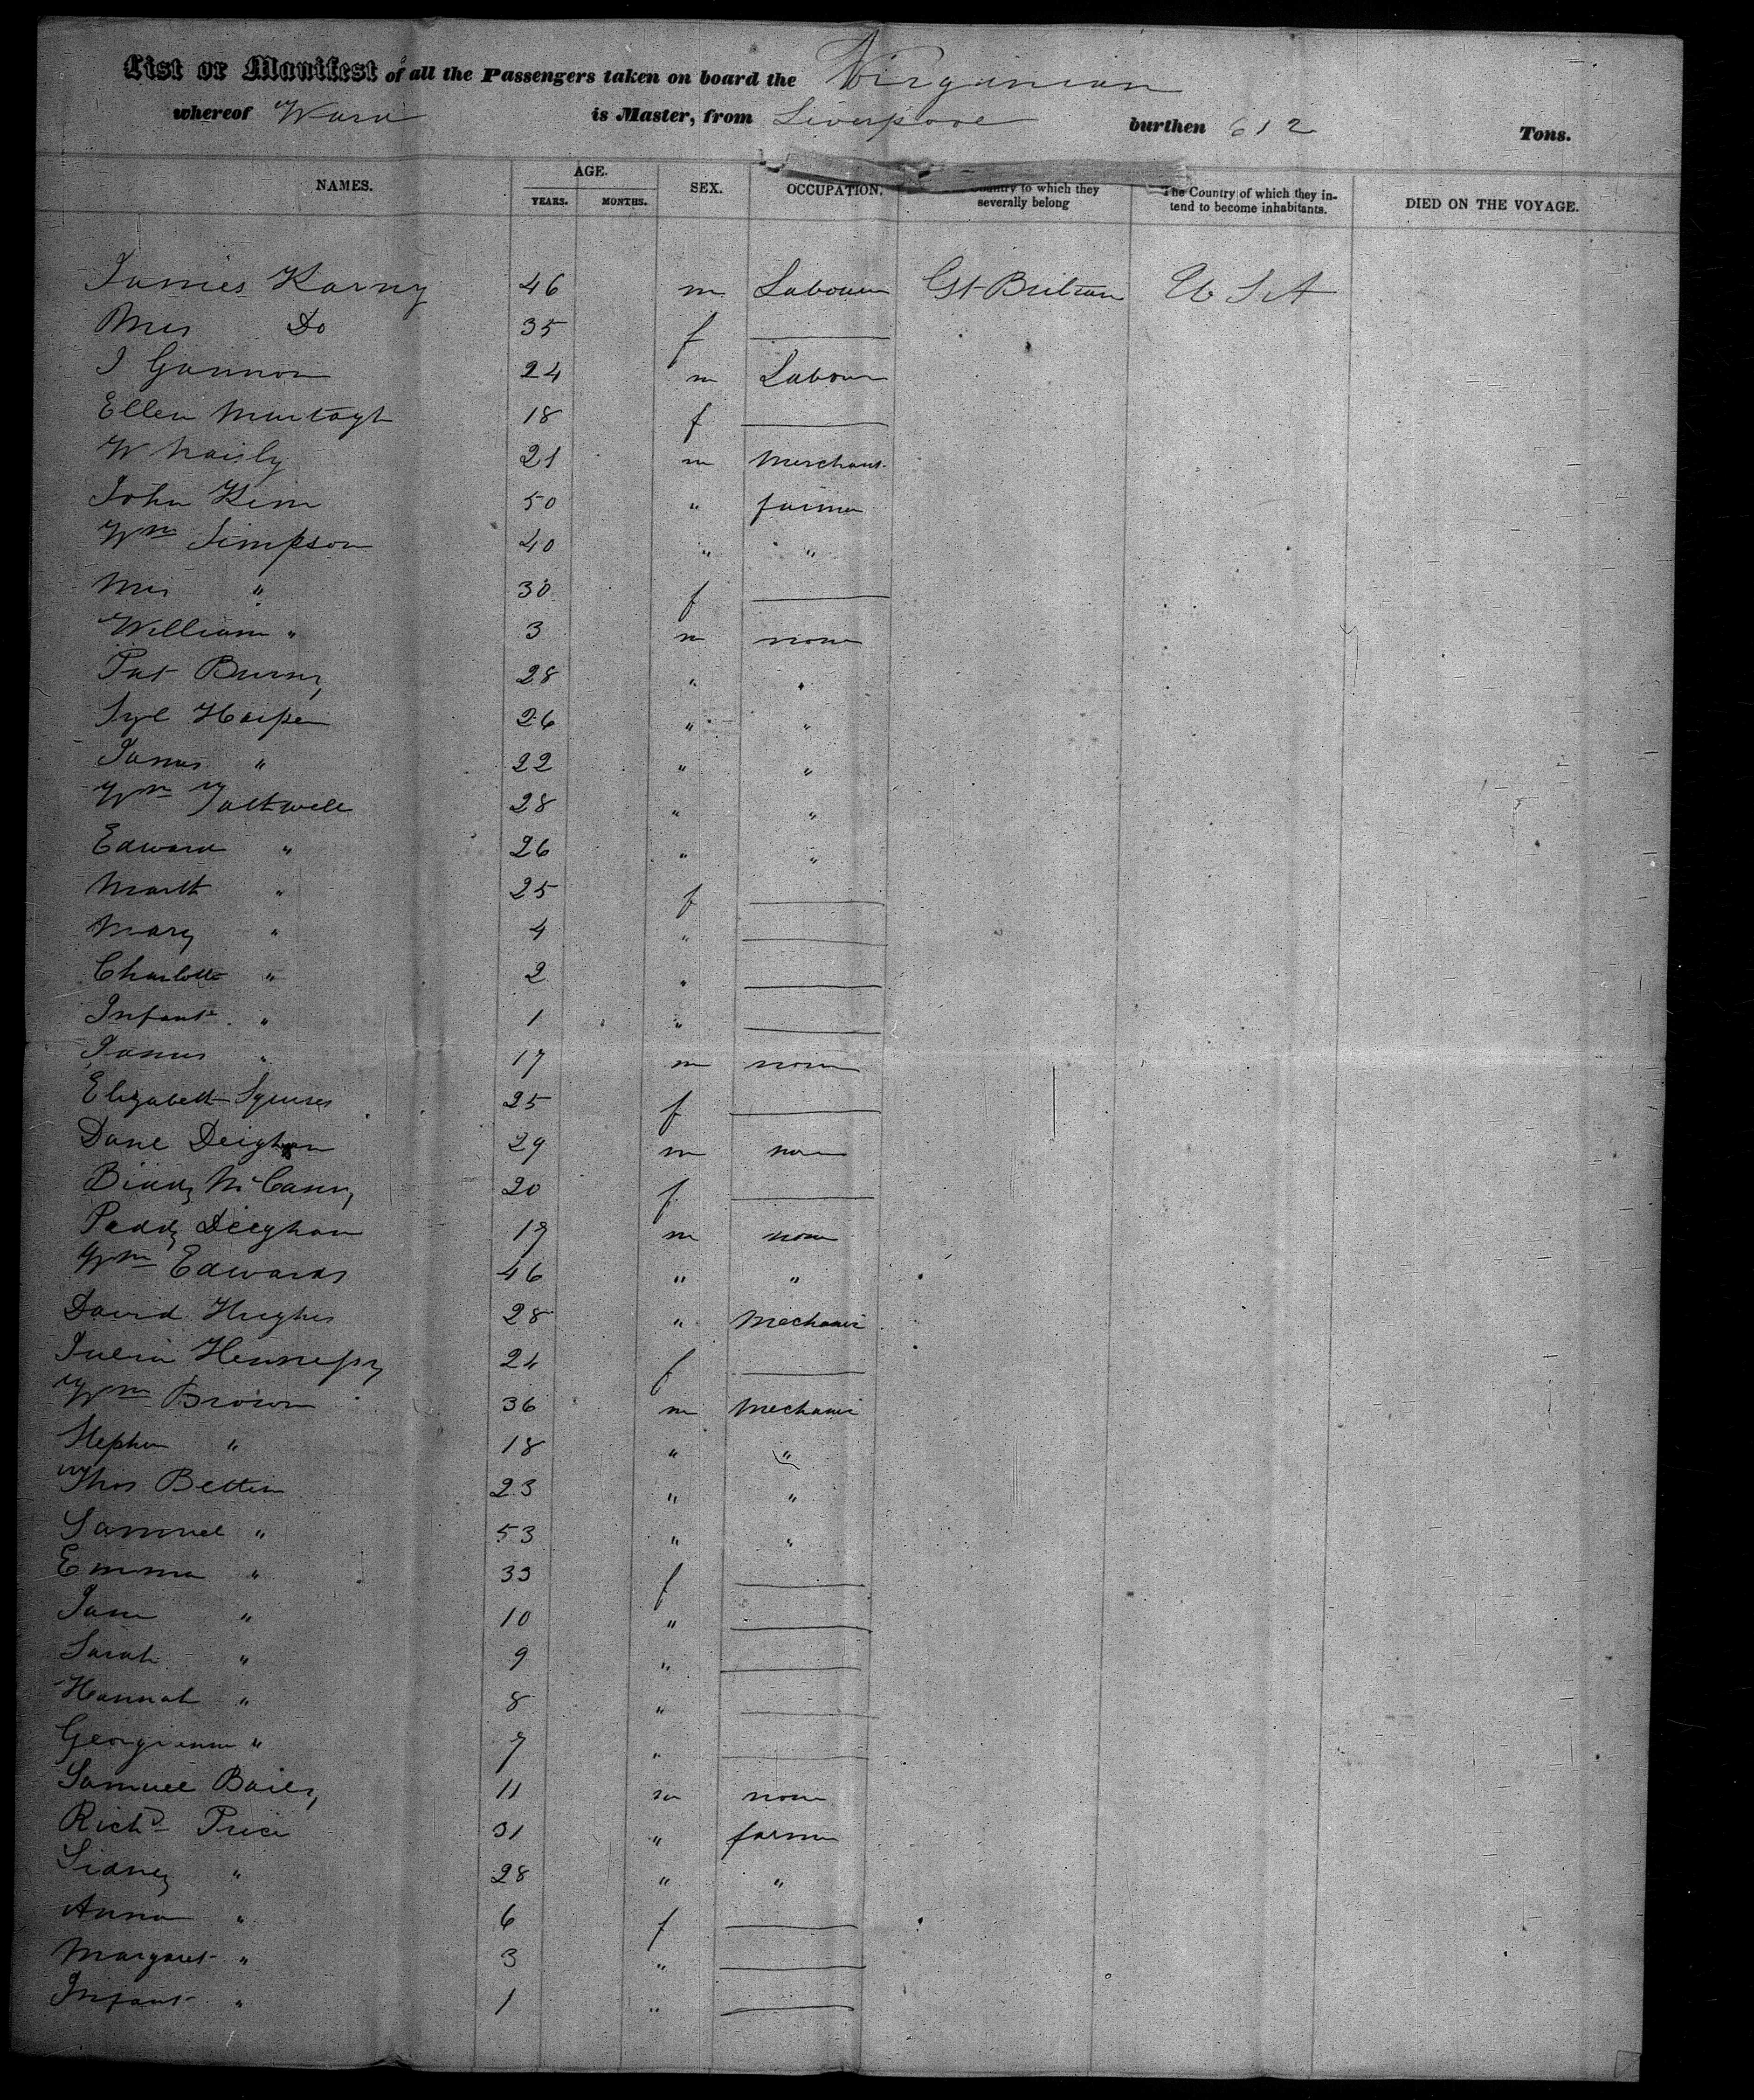 List or Manifest of all the Passengers taken on board the Virginian
whereof Ward is Master, from Liverpool burthen 612 Tons.
NAMES. AGE. YEARS. MONTHS. SEX. OCCUPATION. Country to which they severally belong The Country of which they intend to become inhabitants. DIED ON THE VOYAGE.
James Karny 46 m Labourer Gt Britain U S A
Mrs Do 35 f
J Gannon 24 m Labour
Ellen Murtagh 18 f
W 21 m Merchant
John Kim 50 " farmer
Wm Simpson 40 " "
Mrs " 30 f
William " 3 m none
Pat Burns 28 " "
Syl Harper 26 " "
James " 22 " "
Wm 28 " "
Edward " 26 " "
Marth " 25 f
Mary " 4 "
Charlotte " 2 "
Infant " 1 "
James " 17 m none
Elizabeth Squires 25 f
Dane Deighan 29 m none
Biddy McCann 20 f
Paddy Deighan 19 m none
Wm Edwards 46 " "
David Hughes 28 " Mechanic
Julia Hennessy 24 f
Wm Brown 36 m Mechanic
Stephen " 18 " "
Thos Bettin 23 " "
Samuel " 53 " "
Emma " 33 f
Jane " 10 "
Sarah " 9 "
Hannah " 8 "
Georgianna " 7 "
Samuel Baily 11 m none
Richd Price 31 " farmer
Sidney " 28 " "
Anna " 6 f
Margaret " 3 "
Infant " 1 "